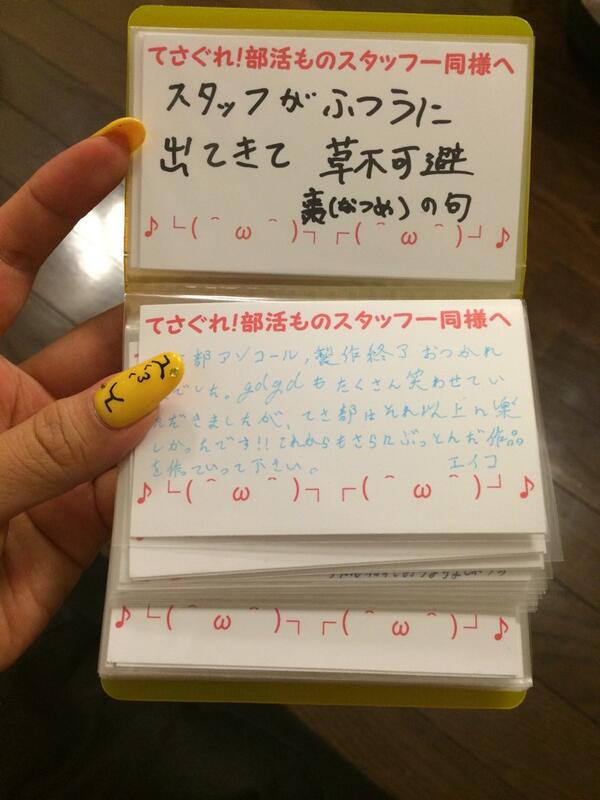 てさぐれ!部活ものスタッフ一同様へ
スタッフがふつうに
出てきて 草不可避
棗(なつめ)の句
♪└(＾ω＾)┐┌(＾ω＾)┘♪
てさぐれ!部活ものスタッフ一同様へ
部アンコール,製作終了おつかれ
でした。gdgdもたくさん笑わせてい
ただきましたが、てさ部はそれ以上に楽
しかったです!!これからもさらにぶっとんだ作品
を作っていって下さい。 エイコ
♪└(＾ω＾)┐┌(＾ω＾)┘♪
♪└(＾ω＾)┐┌(＾ω＾)┘♪